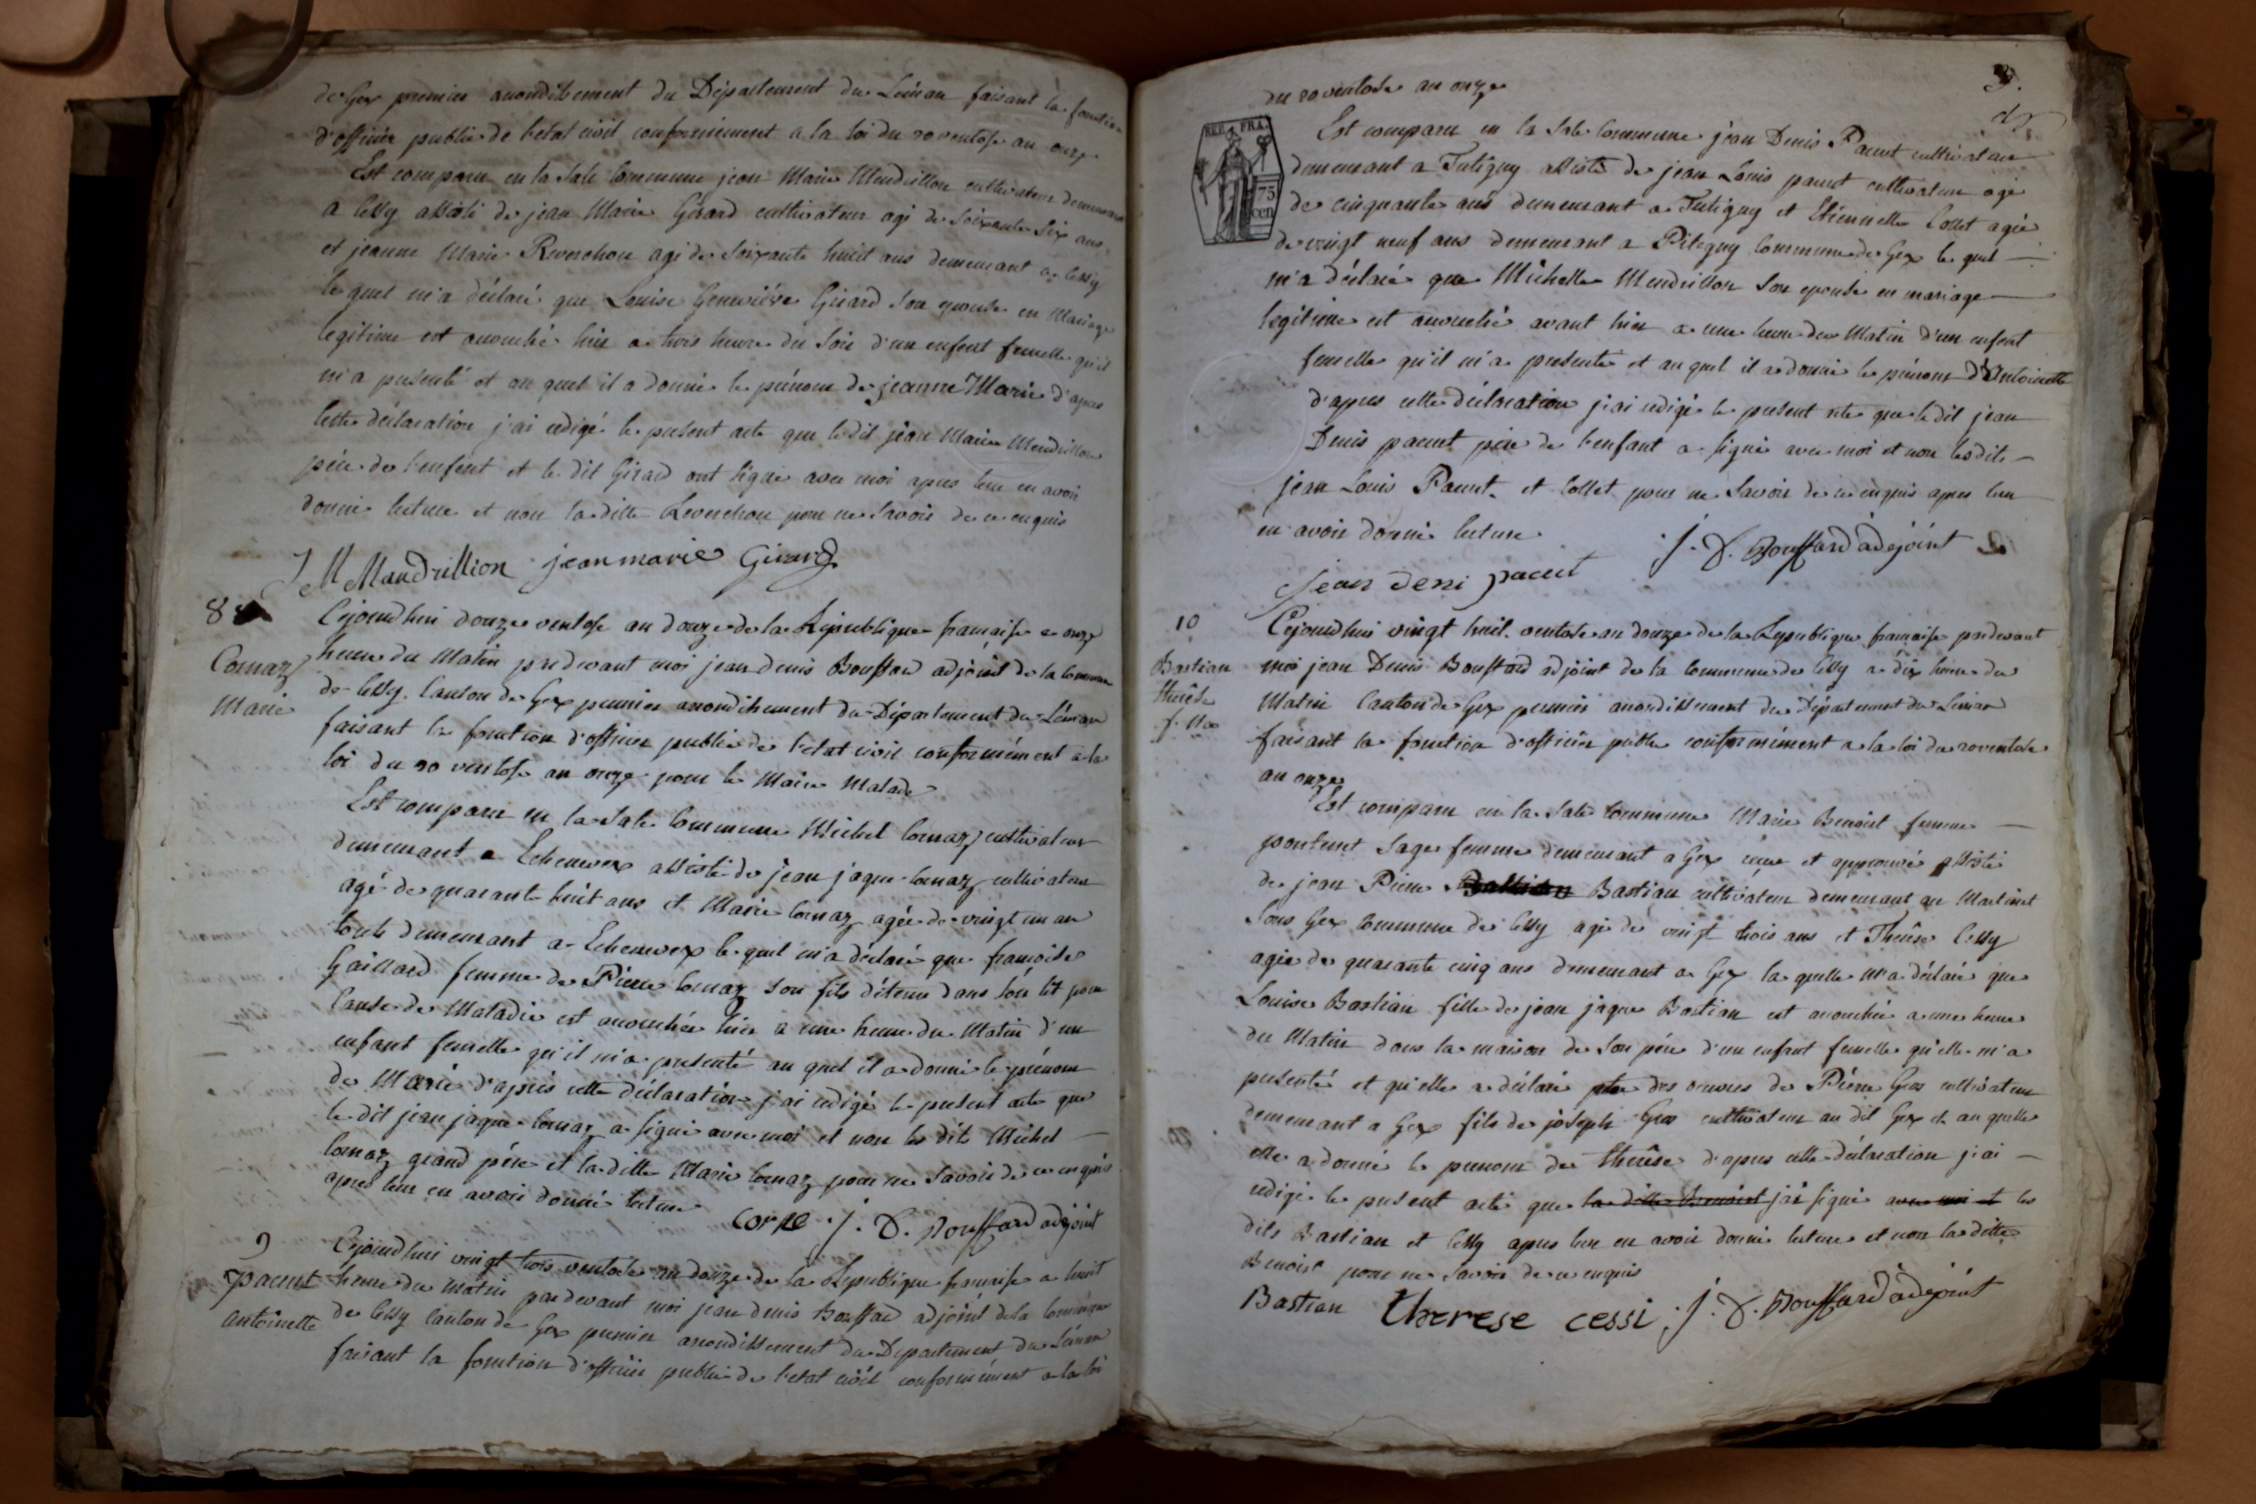 de Gex premier arrondissement du Département du Léman faisant la fonction
d'officier public de l'etat civil conformément a la loi du 20 ventose an onze
Est comparu en la Sale Commune jean Marie Mendrillon cultivateur demeurant
a Cessy assisté de jean Marie Girard cultivateur agé de Soixante Six ans
et jeanne Marie agé de Soixante huit ans demeurant a Cessy
le quel m'a déclaré que Louise Geneviéve Girard Son epouse en Mariage
legitime est accouché hier a trois heure du Soir d'un enfent femelle qu'il
m'a presenté et au quel il a donné le prénom de jeanne Marie d'apres
cette déclaration j'ai redigé le present acte que le dit jean Marie Mendrillon
pére de l'enfent et le dit Girard ont signé avec moi apres leur en avoir
donné lecture et non la ditte pour ne Savoir de ce enquis
J M Mandrillion jean marie Girard
8
Cornaz
Marie
Cejourdhui douze ventose an douze de la République francaise a onze
heure du Matin pardevant moi jean denis Bouffard adjoint de la Commune
de Cessy Canton de Gex premier arrondissement du Département du Léman
faisant la fonction d'officier public de l'etat civil conformément a la
loi du 20 ventose an onze pour le Maire Malade
Est comparu en la Sale Commune Michel Cornaz cultivateur
demeurant a Echenevex assisté de jean jaque Cornaz cultivateur
agé de quarante huit ans et Marie Cornaz agée de vingt un an
touts demeurant a Echenevex le quel m'a déclaré que francoise
Gaillard femme de Piérre Cornaz Son fils détenu dans Son lit pour
Cause de Maladie est accouchée hier a une heure du Matin d'un
enfant femelle qu'il m'a presenté au quel il a donné le prénom
de Marie d'aprés cette déclaration j'ai redigé le present acte que
le dit jean jaque Cornaz a signé avec moi et non les dits Michel
Cornaz grand pére et la ditte Marie Cornaz pour ne Savoir de ce enquis
apres leur en avoir donné lecture J. D. Bouffard adejoint
9
pacut
antoinette
Cejourdhui vingt trois ventose an douze de la Republique francaise a huit
heure du matin pardevant moi jean denis Bouffard adjoint de la Commune
de Cessy Canton de Gex premier arrondissement du Departement du Léman
faisant la fonction d'officier public de l'etat civil conformément a la loi
du 20 ventose an onze
REP. FRA.
75
cen
Est comparu en la Sale Commune jean Denis Pacut cultivateur
demeurant a Tutigny assisté de jean Louis pacut cultivateur agé
de cinquante ans demeurant a Tutigny et Etiennette Collet agée
de vingt neuf ans demeurant a Pitegny Commune de Gex le quel
m'a déclaré que Michelle Mendrillon Son epouse en mariage
legitime est accouchée avant hier a une heure du Matin d'un enfent
femelle qu'il m'a presenté et au quel il a donné le prénom d'Antoinette
d'apres cette déclaration j'ai redigé le present acte que le dit jean
Denis pacut pére de l'enfant a signé avec moi et non les dits
jean Louis Pacut et Collet pour ne Savoir de ce enquis apres leur
en avoir donné lecture J. D. Bouffard adejoint
jean deni pacut
10
Bastian
thérése
Cejourdhui vingt huit ventose an douze de la Republique francaise pardevant
moi jean Denis Bouffard adjoint de la Commune de Cessy a dix heure du
Matin Canton de Gex premier arrondissement du Département du Léman
faisant la fonction d'officier public conformément a la loi du 20 ventose
an onze
Est comparu en la Sale Commune Marie Benoist femme
pontenet Sage femme demeurant a Gex et approuvé assisté
de jean Pierre Bastian Bastian cultivateur demeurant au Martinet
Sous Gex Commune de Cessy agé de vingt trois ans et Thérése Cessy
agée de quarante cinq ans demeurant a Gex la quelle m'a déclaré que
Louise Bastian fille de jean jaque Bastian est accouchée a une heure
du Matin dans la maison de Son pére d'un enfant femelle qu'elle m'a
presenté et qu'elle a déclaré des oeuvres de Piérre Gros cultivateur
demeurant a Gex fils de joseph Gros cultivateur au dit Gex et au quelle
elle a donné le prenom de thérése d'apres cette déclaration j'ai
redigé le present acte que la ditte Benoist j'ai signé avec moi et les
dits Bastian et Cessy apres leur en avoir donné lecture et non la ditte
Benoist pour ne Savoir de ce enquis
Bastian therese cessi J. D. Bouffard adejoint